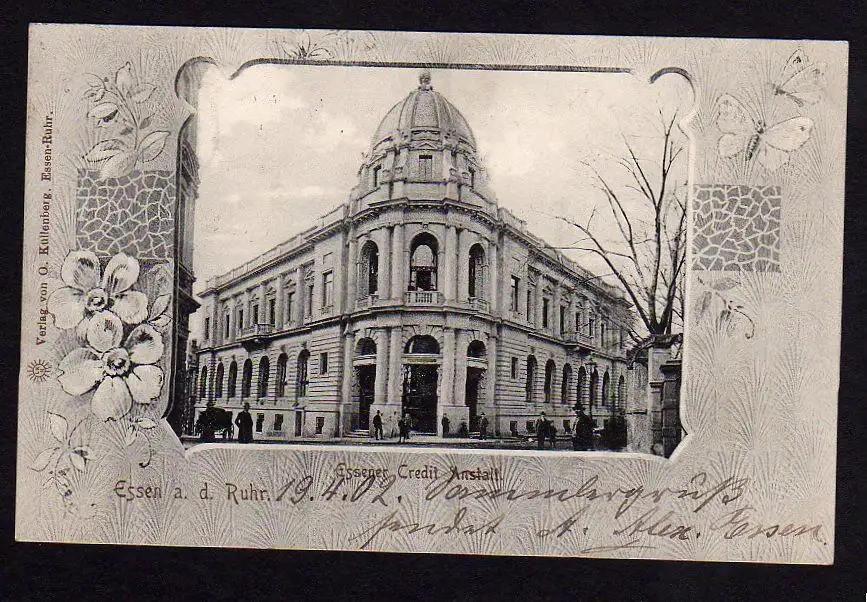 Verlag von O. Küllenberg, Essen-Ruhr.
Essener Credit Anstalt.
Essen a. d. Ruhr. 19.4.02. Sammlergruß
sendet A. Alex. Essen